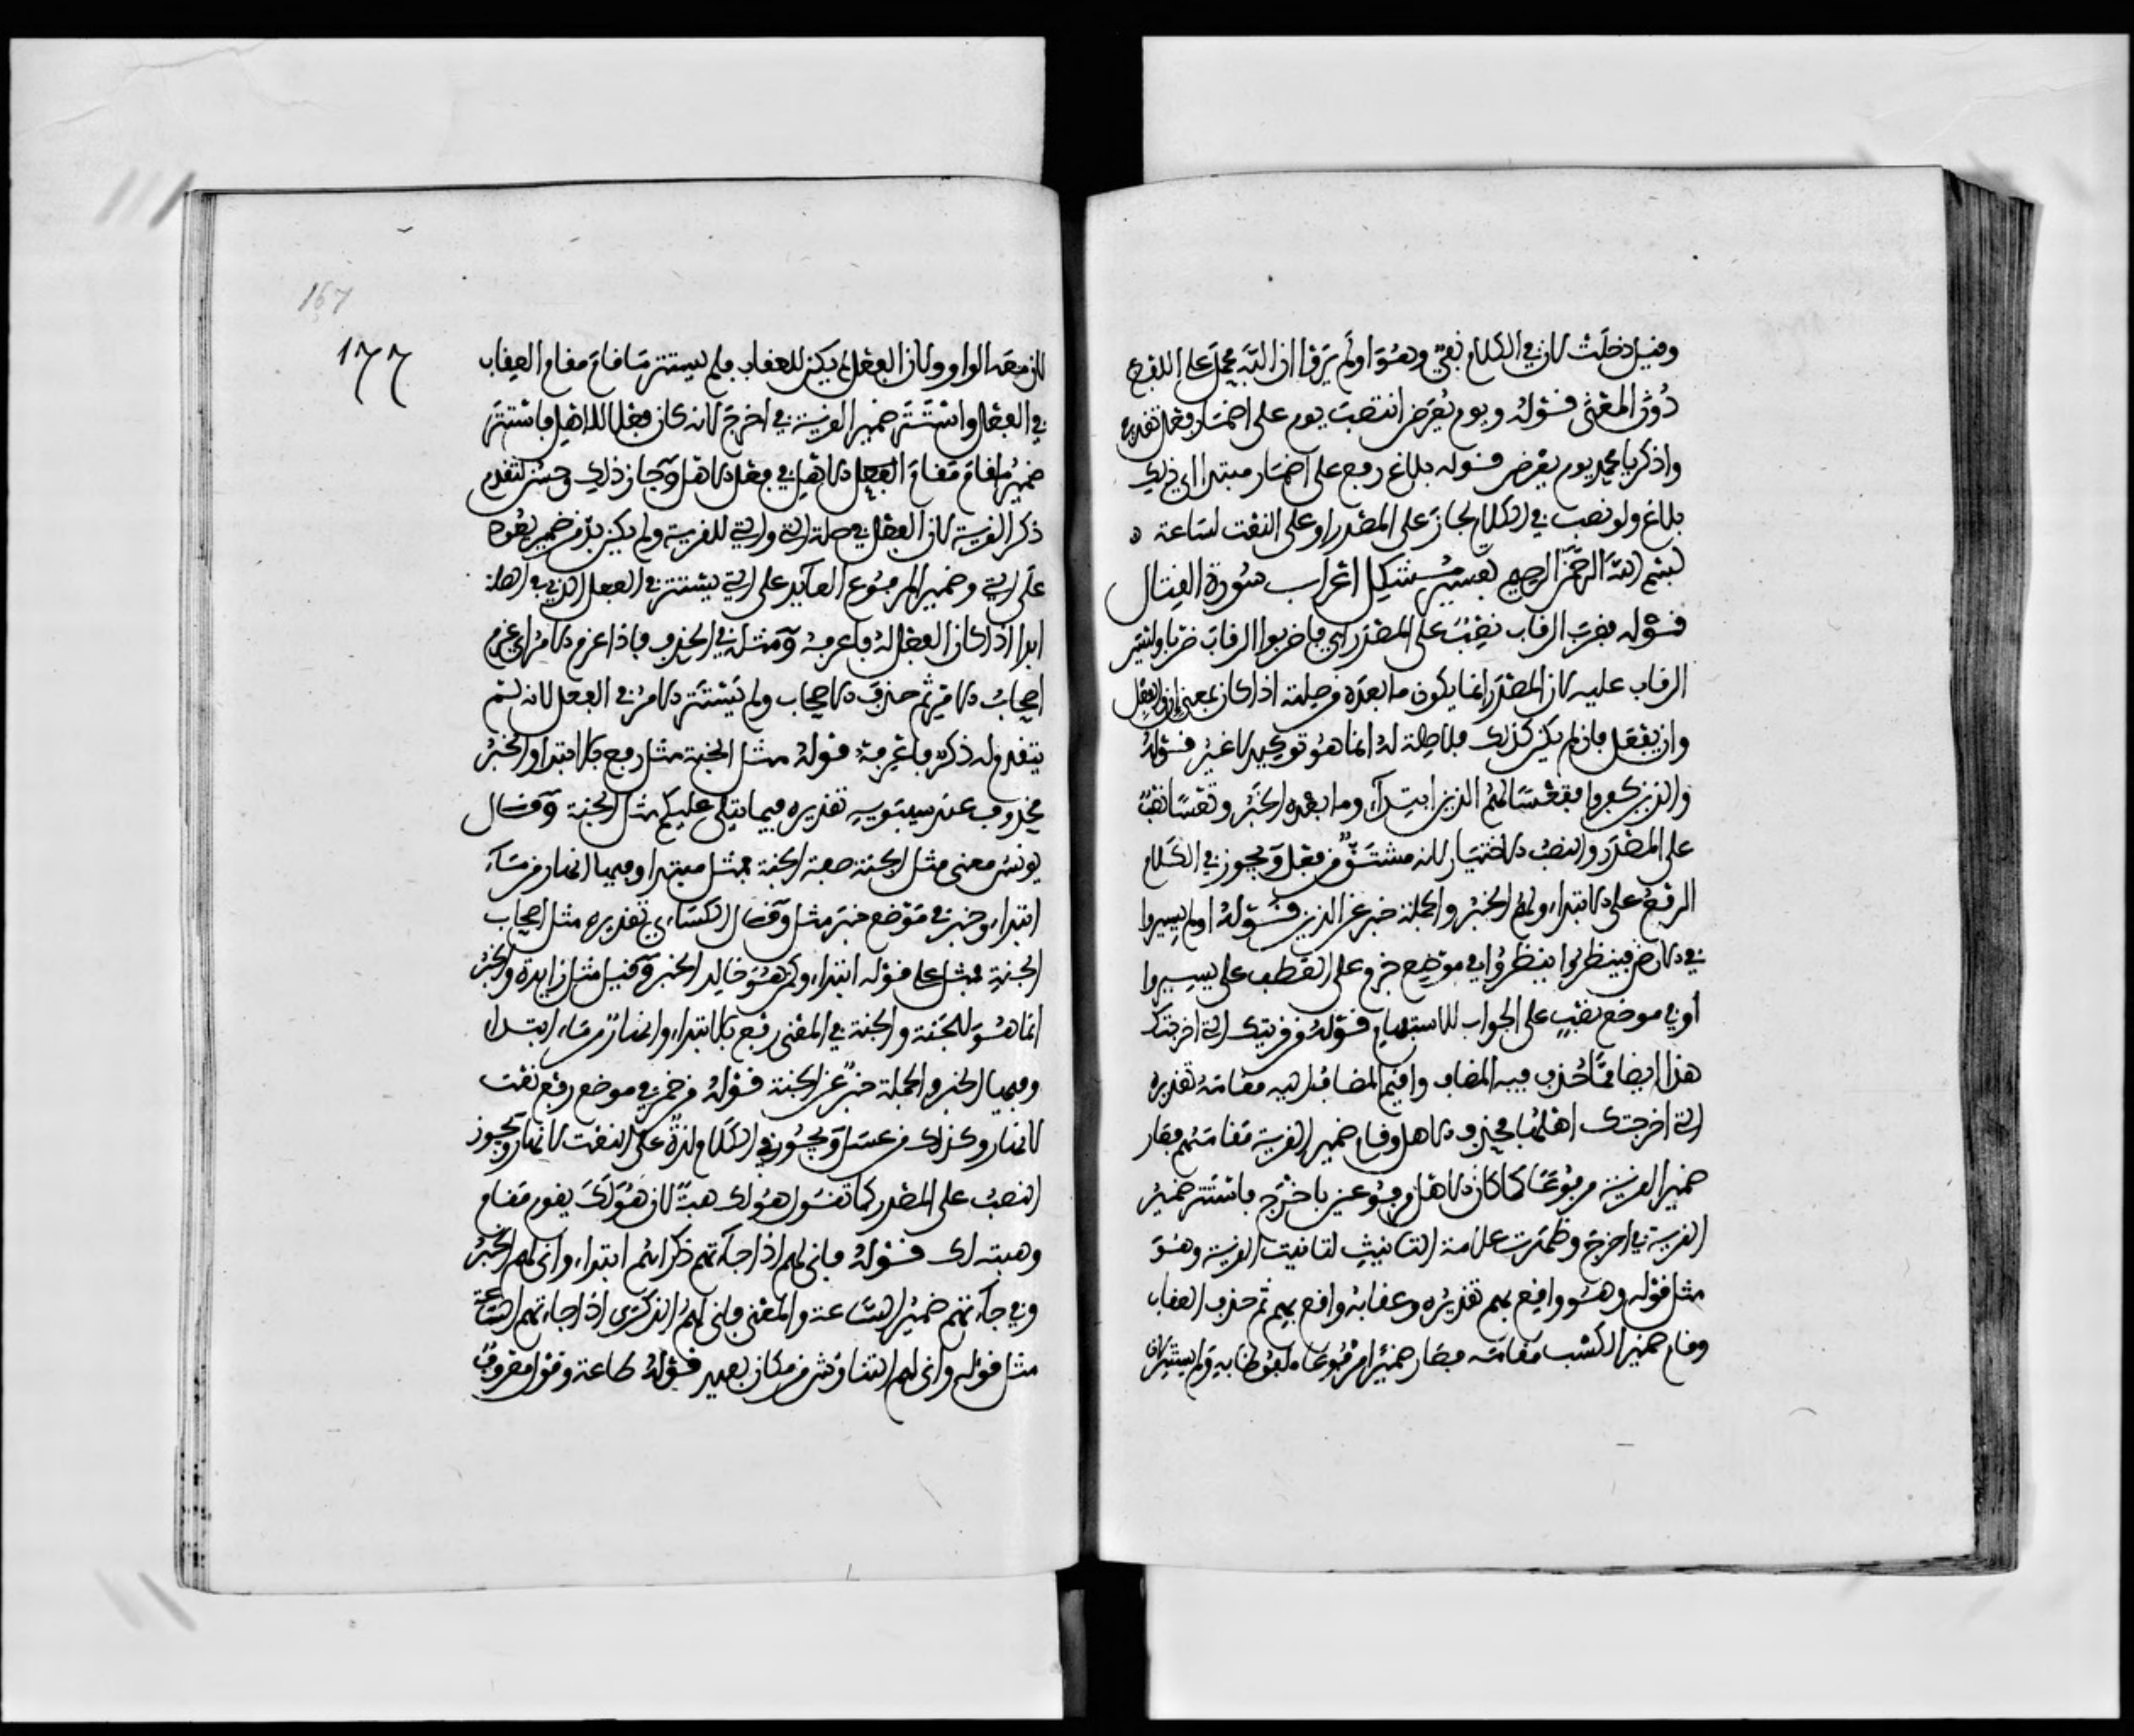 وقيل دخلت لان في الكلام نفي وهو اولم يروا ان الله محمل على اللفظ
دون المعنى قوله ويوم يعرض انتصب يوم على اضمار فعل تقديره
واذكر يا محمد يوم يعرض قوله بلاغ رفع على اضمار مبتدا اي ذلك
بلاغ ولو نصب في الكلام لجاز على المصدر او على النعت لساعة ٥
بسم الله الرحمن الرحيم تفسير مشكل اعراب سورة القتال
قوله فضرب الرقاب نصب على المصدر اي فاضربوا الرقاب ضربا وليس
الرقاب عليه لان المصدر انما يكون ما بعده في صلته اذا كان بمعنى ان والفعل
وان يفعل فان لم يكن كذلك فلا صلة له انما هو توكيد لا غير قوله
والذين كفروا فتعسا لهم الذين ابتداء وما بعده الخبر وتعسا نصب
على المصدر والنصب الاختيار لانه مشتق من فعل ويجوز في الكلام
الرفع على الابتداء ولهم الخبر والجملة خبر عن الذين قوله اولم يسيروا
في الارض فينظروا ينظروا في موضع جزم على العطف على يسيروا
او في موضع نصب على الجواب للاستفهام قوله من قريتك التي اخرجتك
هذا ايضا مما حذف فيه المضاف واقيم المضاف اليه مقامه تقديره
التي اخرجك اهلها فحذف الاهل وقام ضمير القرية مقامهم فصار
ضمير القرية مرفوعا كما كان الاهل مرفوعين باخرج فاستتر ضمير
القرية في اخرج وظهرت علامة التانيث لتانيث القرية وهو
مثل قوله وهو واقع بهم تقديره وعقابه واقع بهم ثم حذف العقاب
وقام ضمير الكسب مقامه فصار ضميرا مرفوعا ملفوظا به ولم يستتر لان
167
177
لان معه الواو ولان الفعل لم يكن للعقاب فلم يستتر ما قام مقام العقاب
في الفعل واستتر ضمير القرية في اخرج لانه كان فعلا للاهل فاستتر
ضمير ما قام مقام الفعل الاهل في فعل الاهل وجاز ذلك وحسن لتقدم
ذكر القرية لان الفعل في صلة التي والتي للقرية ولم يكن بد من ضمير يعود
على التي وضمير المرفوع العائد على التي يستتر في الفعل الذي في الصلة
ابدا اذا كان الفعل له فاعرفه ومثله في الحذف فاذا عزم الامر اي عزم
اصحاب الامر ثم حذف الاصحاب ولم يستتر الامر في الفعل لانه لم
يتقدم له ذكر فاعرفه قوله مثل الجنة مثل رفع بالابتداء والخبر
محذوف عند سيبويه تقديره فيما يتلى عليكم مثل الجنة وقال
يونس معنى مثل الجنة صفة الجنة فمثل مبتدا وفيها انهار من ماء
ابتداء وخبر في موضع خبر مثل وقال الكسائي تقديره مثل اصحاب
الجنة فمثل على قوله ابتداء وكمن هو خالد الخبر وقيل مثل زايدة والخبر
انما هو للجنة والجنة في المعنى رفع بالابتداء وانهار من ماء ابتداء
وفيها الخبر والجملة خبر عن الجنة قوله من خمر في موضع رفع نعت
لانهار وكذلك من عسل ويجوز في الكلام لذة على النعت لانهار ويجوز
النصب على المصدر كما تقول هو لك هبة لان هو لك يقوم مقام
وهبته لك قوله فانى لهم اذا جاءتهم ذكراهم ابتداء وانى لهم الخبر
وفي جاءتهم ضمير الساعة والمعنى فانى لهم الذكرى اذا جاءتهم الساعة
مثل قوله وانى لهم التناوش من مكان بعيد قوله طاعة وقول معروف